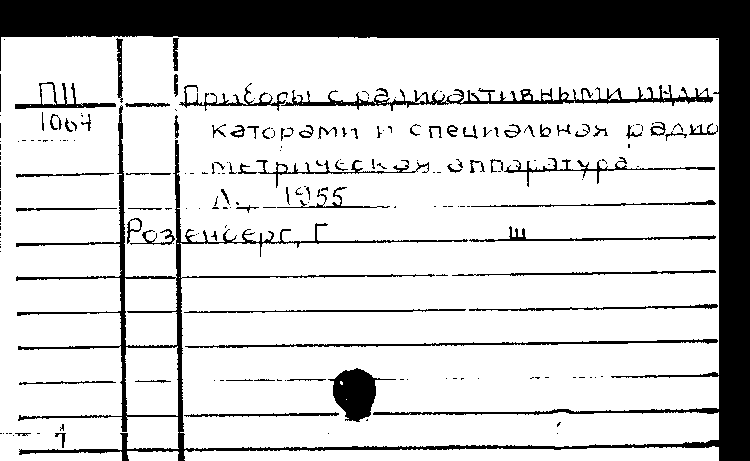 П11
1064
Приборы с радиоактивными инди-
каторами и специальная радио
метрическая аппаратура.
Л., 1955
Розенберг, Г ш
7